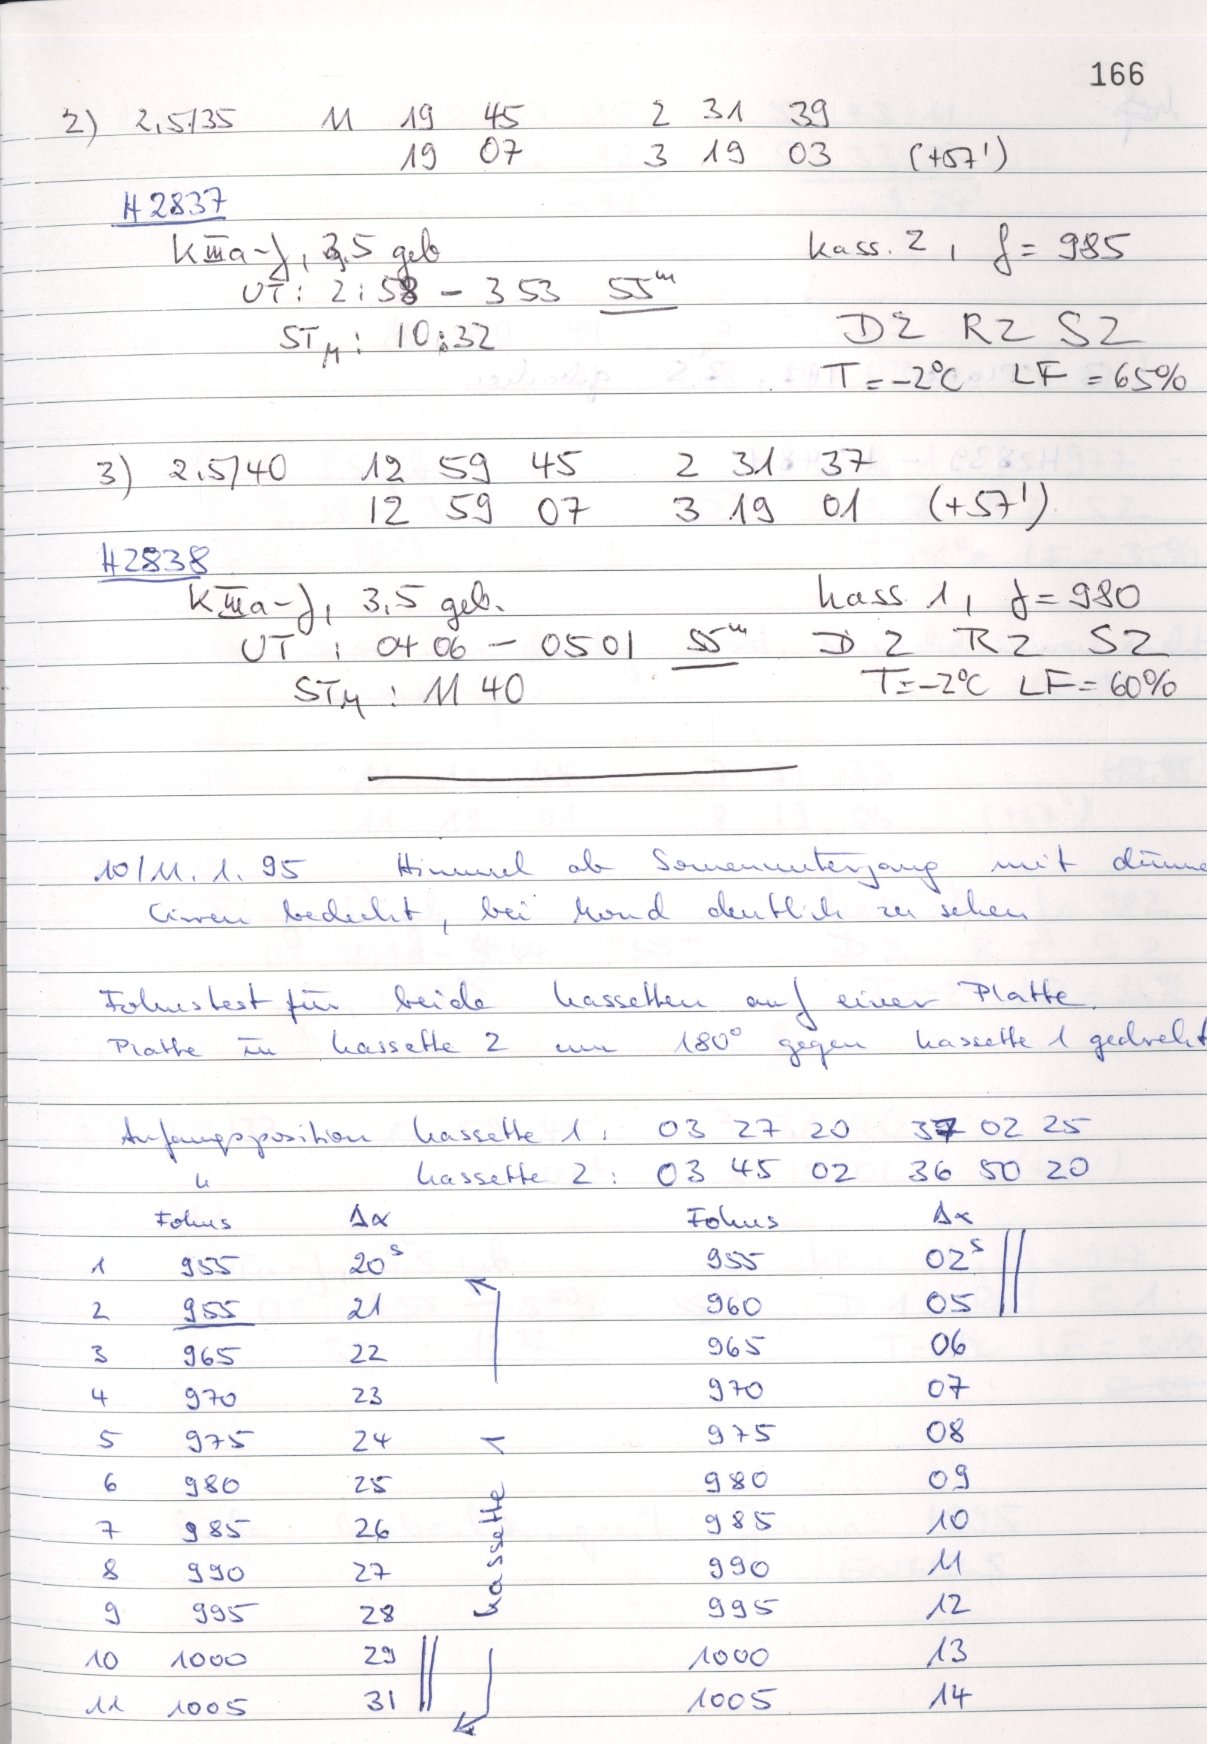 166
2) 2,5/35 11 19 45 2 31 39
19 07 3 19 03 (+57')
H2837
KIIIa-J, 3,5 geb Kass. 2, f = 985
UT: 2:58 - 3 53 55m
STM: 10:32 D2 R2 S2
T = -2°C LF = 65%
3) 2.5/40 12 59 45 2 31 37
12 59 07 3 19 01 (+57')
H2838
KIIIa-J, 3,5 geb. Kass 1, f = 980
UT : 04 06 - 05 01 55m D 2 R2 S2
STM : 11 40 T=-2°C LF=60%
10/11. 1. 95 Himmel ab Sonnenuntergang mit dünne
Cirren bedeckt, bei Mond deutlich zu sehen
Fokustest für beide Kassetten auf einer Platte.
Platte in Kassette 2 um 180° gegen Kassette 1 gedreht
Anfangsposition Kassette 1: 03 27 20 37 02 25
" Kassette 2: 03 45 02 36 50 20
Fokus Δα Fokus Δα
1 955 20s 955 02s
2 955 21 960 05
3 965 22 965 06
4 970 23 970 07
5 975 24 975 08
6 980 25 980 09
7 985 26 985 10
8 990 27 990 11
9 995 28 995 12
10 1000 29 1000 13
11 1005 31 1005 14
Kassette 1